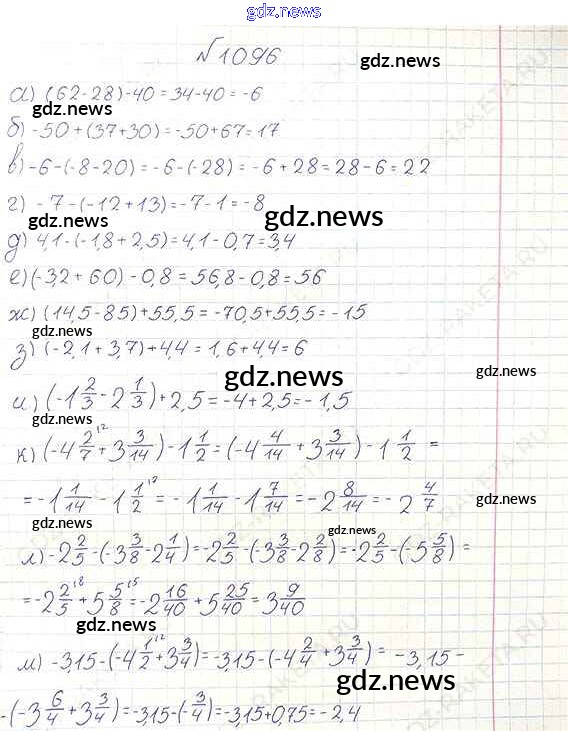 gdz.news
№1096
gdz.news
а) (62-28)-40=34-40=-6
gdz.news
б) -50+(37+30)=-50+67=17
gdz.news
в) -6-(-8-20)=-6-(-28)=-6+28=28-6=22
г) -7-(-12+13)=-7-1=-8
gdz.news gdz.news
д) 4,1-(-1,8+2,5)=4,1-0,7=3,4
е) (-3,2+60)-0,8=56,8-0,8=56
ж) (14,5-85)+55,5=-70,5+55,5=-15
gdz.news
з) (-2,1+3,7)+4,4=1,6+4,4=6
gdz.news gdz.news
и) (-1 2/3 -2 1/3)+2,5=-4+2,5=-1,5
gdz.news
к) (-4 2/7 +3 3/14)-1 1/2=(-4 4/14 +3 3/14)-1 1/2=
=-1 1/14 -1 1/2=-1 1/14 -1 7/14=-2 8/14=-2 4/7
gdz.news gdz.news
л) -2 2/5-(-3 3/8-2 1/4)=-2 2/5-(-3 3/8-2 2/8)=-2 2/5-(-5 5/8)=
=-2 2/5+5 5/8=-2 16/40+5 25/40=3 9/40
gdz.news
м) -3,15-(-4 1/2+3 3/4)=-3,15-(-4 2/4+3 3/4)=-3,15-
gdz.news
-(-3 6/4+3 3/4)=-3,15-(-3/4)=-3,15+0,75=-2,4
gdz.news